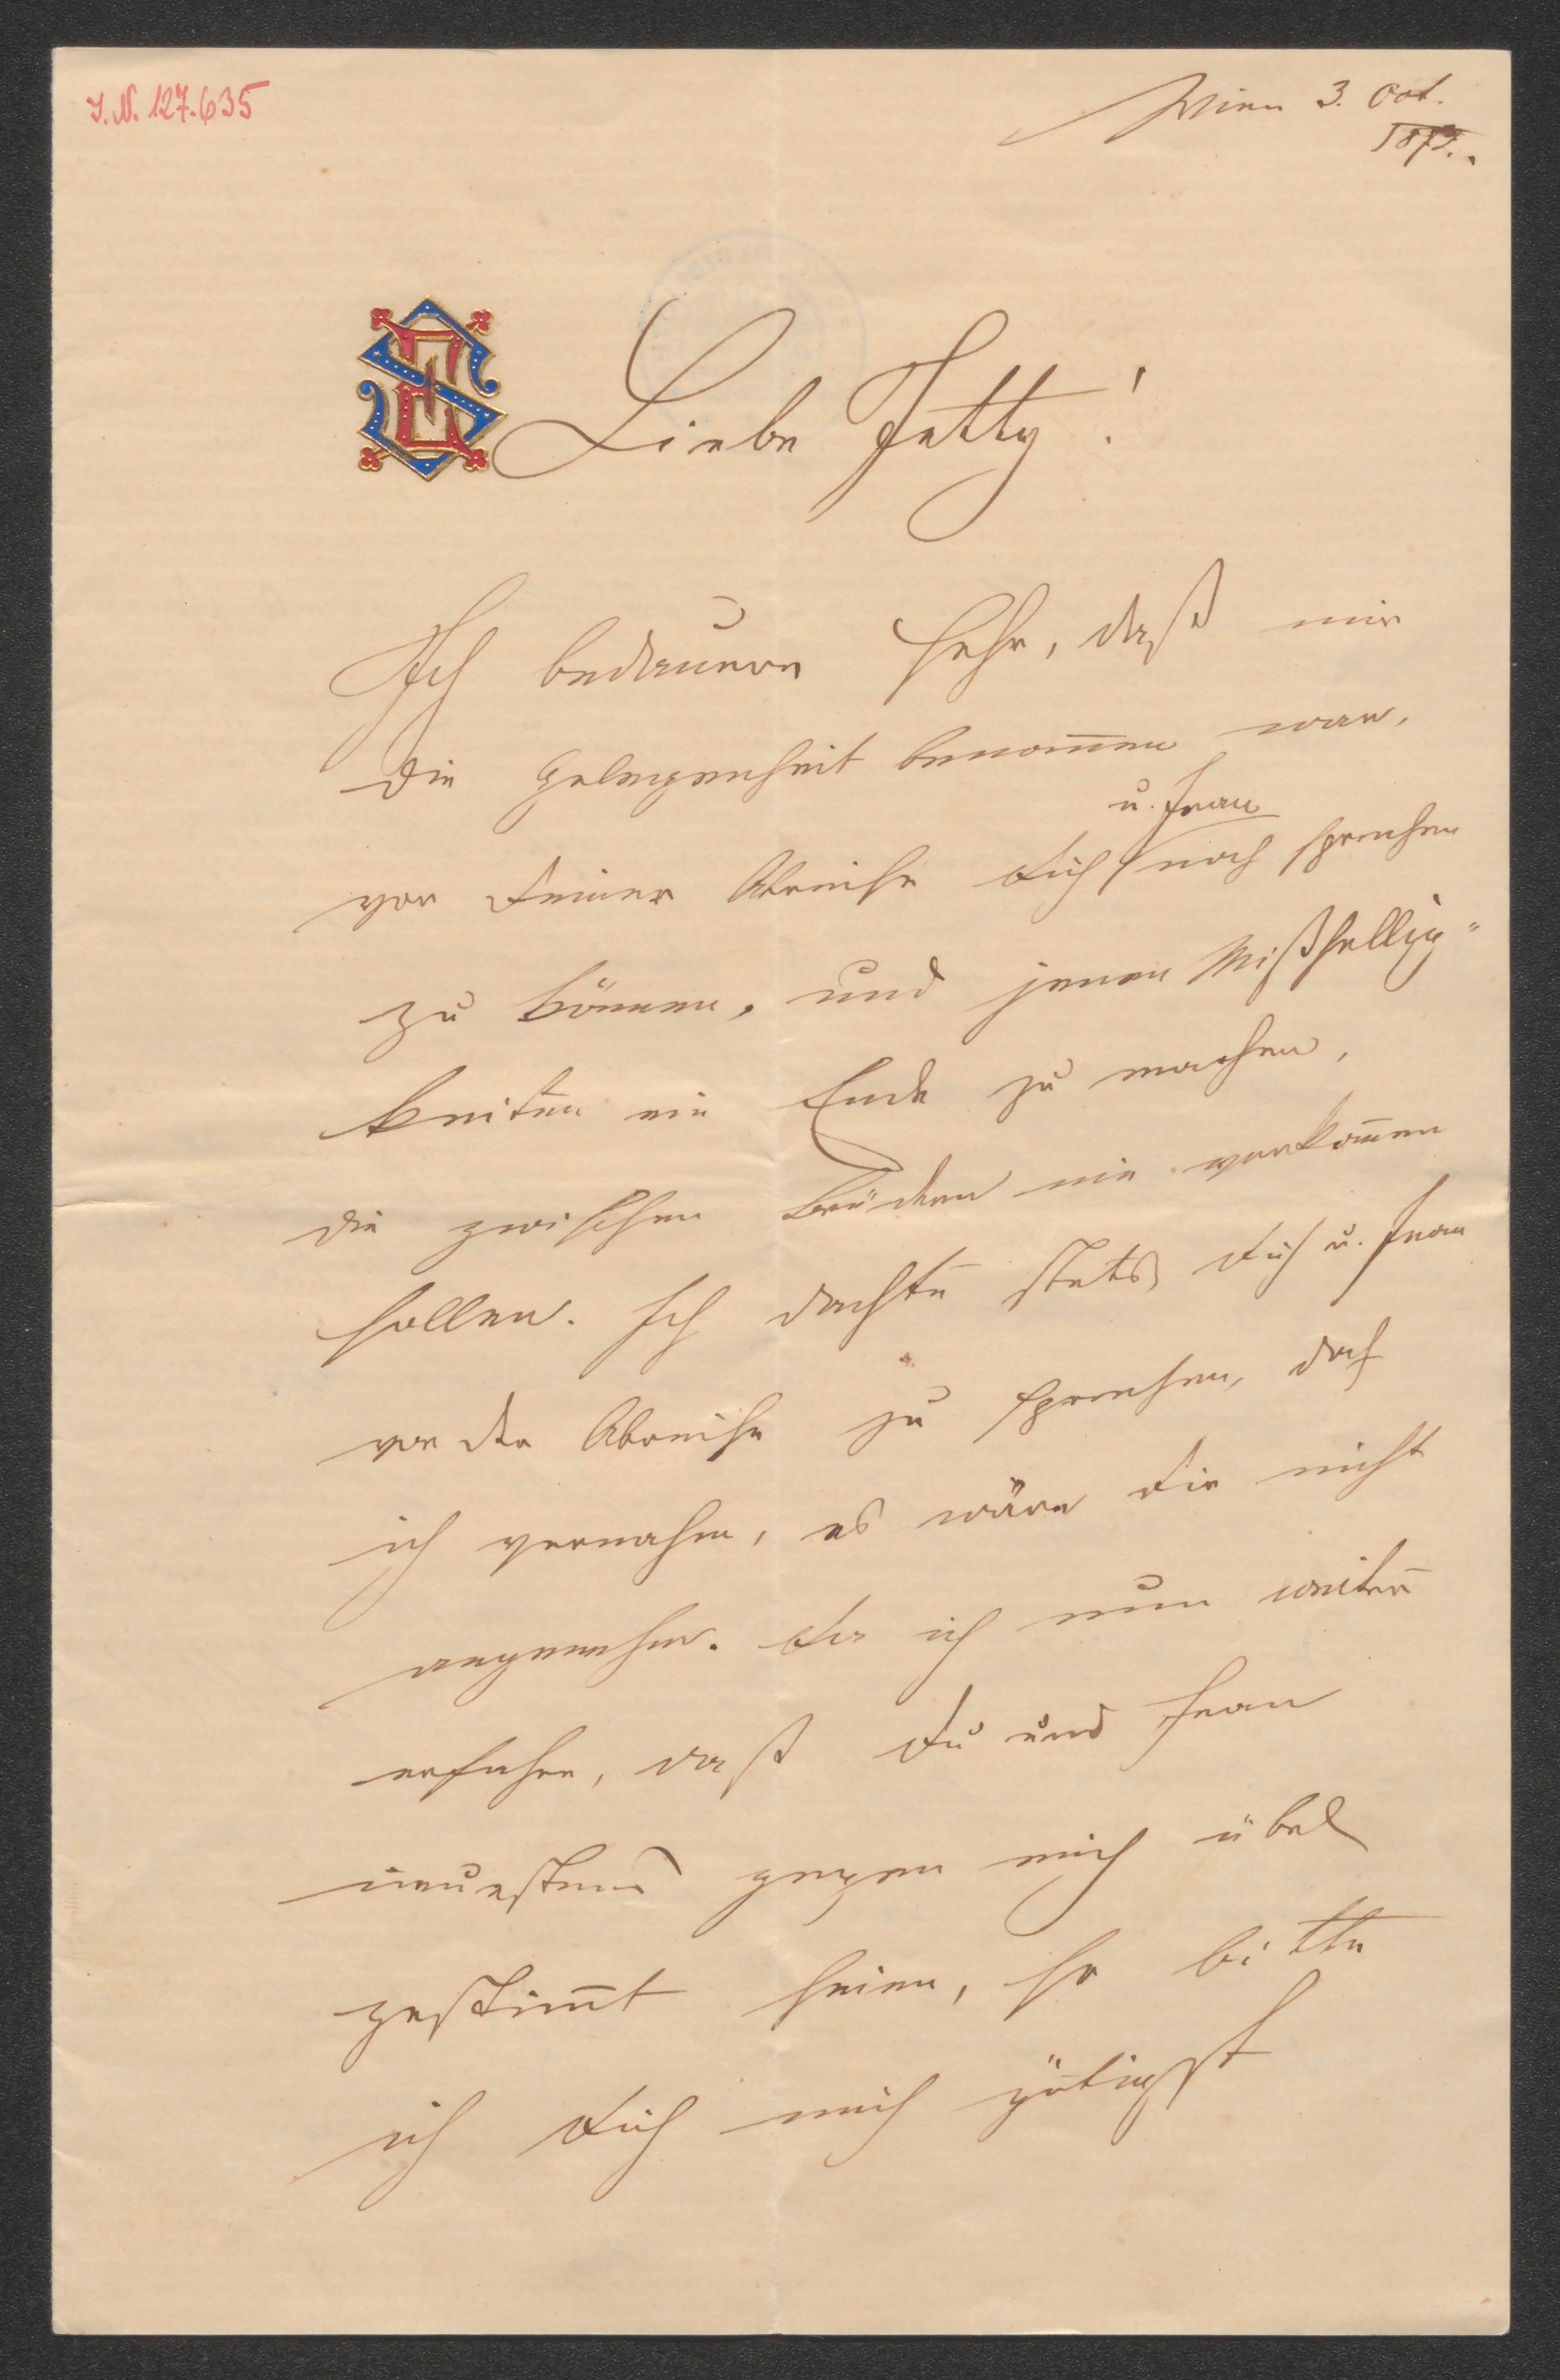 I.N. 127.635
Wien 3. Oct.
Liebe Jetty!
Ich bedauere sehr, daß mir
die Gelegenheit benom̄en war,
u. Jean
vor Deiner Abreise Dich noch sprechen
zu können, und jenen Mißhellig-
keiten ein Ende zu machen,
die zwischen Brüdern nie vorkom̄en
sollen. Ich dachte stets Dich u. Jean
vor der Abreise zu sprechen, doch
ich vernahm, es wäre Dir nicht
angenehm. Da ich nun weiter
erfuhr, daß Du und Jean
neuestens gegen mich übel
gestim̄t seien, so bitte
ich Dich mich gütigst